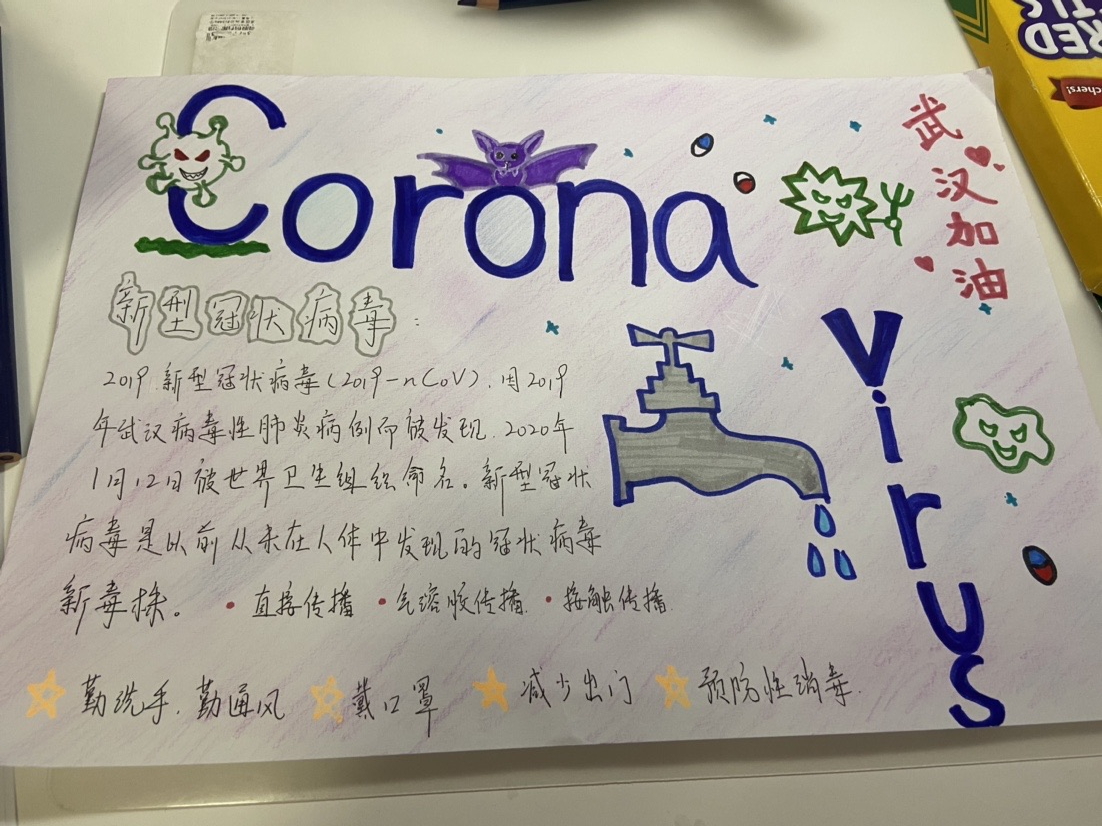 Corona
武汉加油
新型冠状病毒：
Virus
2019新型冠状病毒(2019-nCoV),因2019
年武汉病毒性肺炎病例而被发现,2020年
1月12日被世界卫生组织命名。新型冠状
病毒是以前从未在人体中发现的冠状病毒
新毒株。 • 直接传播 • 气溶胶传播 • 接触传播
勤洗手,勤通风 戴口罩 减少出门 预防性消毒.
RED
chers!